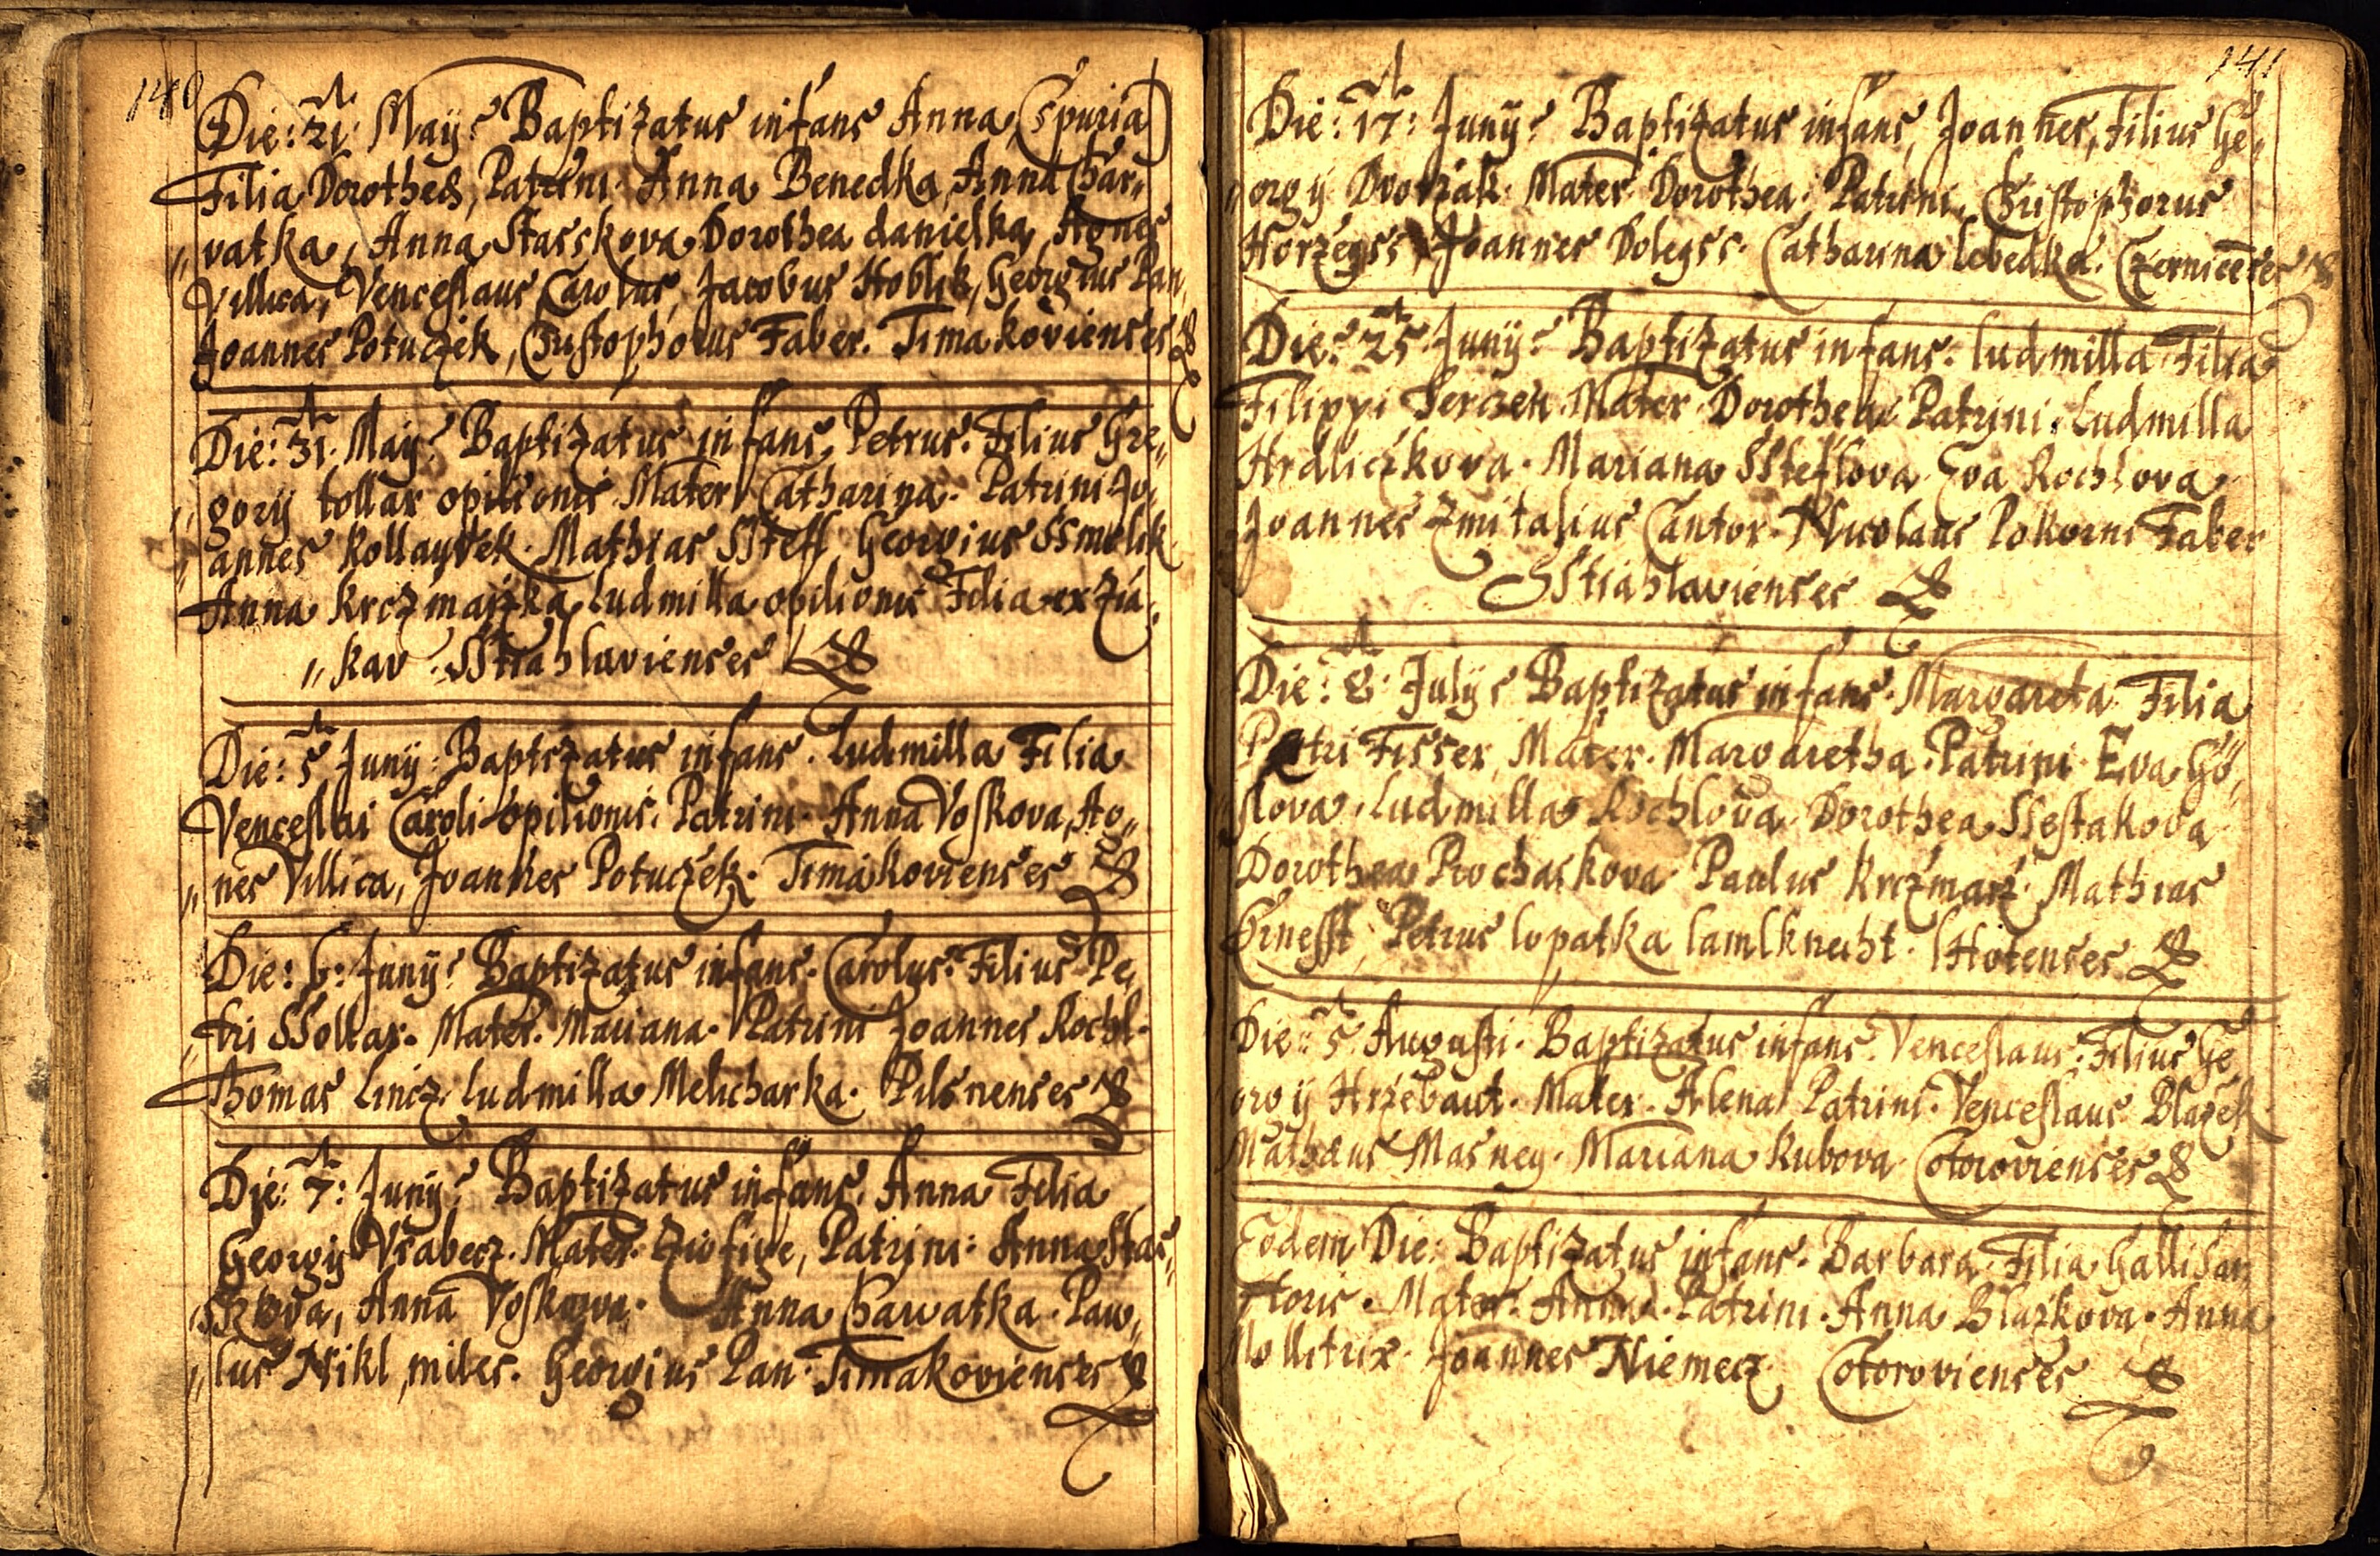 140
Die: 21 Maÿ: Baptizatus infans Anna, (Spuria)
Filia Dorotheæ, Patrini Anna Benedka, Anna Char„
„vatka, Anna Stasskova Dorothea danielka, Agnes
Villica, Venceslaus Carolus, Jacobus Hoblik, Georgius Pan,
Joannes Potuczek, Christophorus Faber. Timakovienses
Die: 31. Maÿ: Baptizatus infans, Petrus. Filius Gre„
„gorÿ tollar opilionis. Mater Catharina. Patrini Jo„
„annes Kollaydek. Mathias SSteffl, Georgius SSmolik
Anna Krczmarzka, Ludmilla opilionis Filia ex
„kav. SStiahlavienses
Die: 5 Junÿ: Baptizatus infans. Ludmilla Filia
Venceslai Caroli opilionis. Patrini. Anna Voskova, Ag„
„nes Villica, Joannes Potuczek. Timakovienses
Die: 6: Junÿ: Baptizatus infans. Carolus. Filius Pe„
„tri SSollar. Mater. Mariana. Patrini Joannes Rochl.
Thomas Lincz. Ludmilla Melicharka. Pilsnenses
Die: 7: Junÿ: Baptizatus infans. Anna Filia
Georgÿ Wrabecz. Mater. Patrini: Anna Stas„
„sskova, Anna Voskowa. Anna Charwatka. Paw„
„lus Nikl, miles. Georgius Pan. Timakovienses
141
Die: 17: Junÿ: Baptizatus infans, Joannes, Filius Ge„
„orgÿ Dvorzak. Mater. Dorothea. Patrini, Christophorus
Horzegss, Joannes Dolegss. Catharina Lebedka. Czernicenses
Die: 25 Junÿ: Baptizatus infans. Ludmilla Filia
Filippi Mater Dorothea. Patrini. Ludmilla
Hrdliczkova. Mariana SSteflova. Eva Rochlova
Joannes Zmitalius Cantor. Nicolaus Pokorni Faber
SStiahlavienses
Die: 8: Julÿ: Baptizatus infans. Margareta. Filia
Petri Fisser, Mater. Margaretha. Patrini. Eva
slova. Ludmilla Rochlova. Dorothea SSestakova
Dorothea Prochaskova. Paulus Krczmarz. Mathias
Ernesst. Petrus lopatka lamlknecht. Lhotenses
Die: 5 Augusti. Baptizatus infans. Venceslaus. Filius Ge„
orgÿ Hrzebaut. Mater. Alena Patrini. Venceslaus Blazek.
Mathæus Masney. Mariana Kubova. Cotorovienses
Eodem Die: Baptizatus infans. Barbara. Filia Galli Sar„
toris. Mater. Anna. Patrini. Anna Blazkova. Anna
Mollitrix. Joannes Niemecz. Cotorovienses